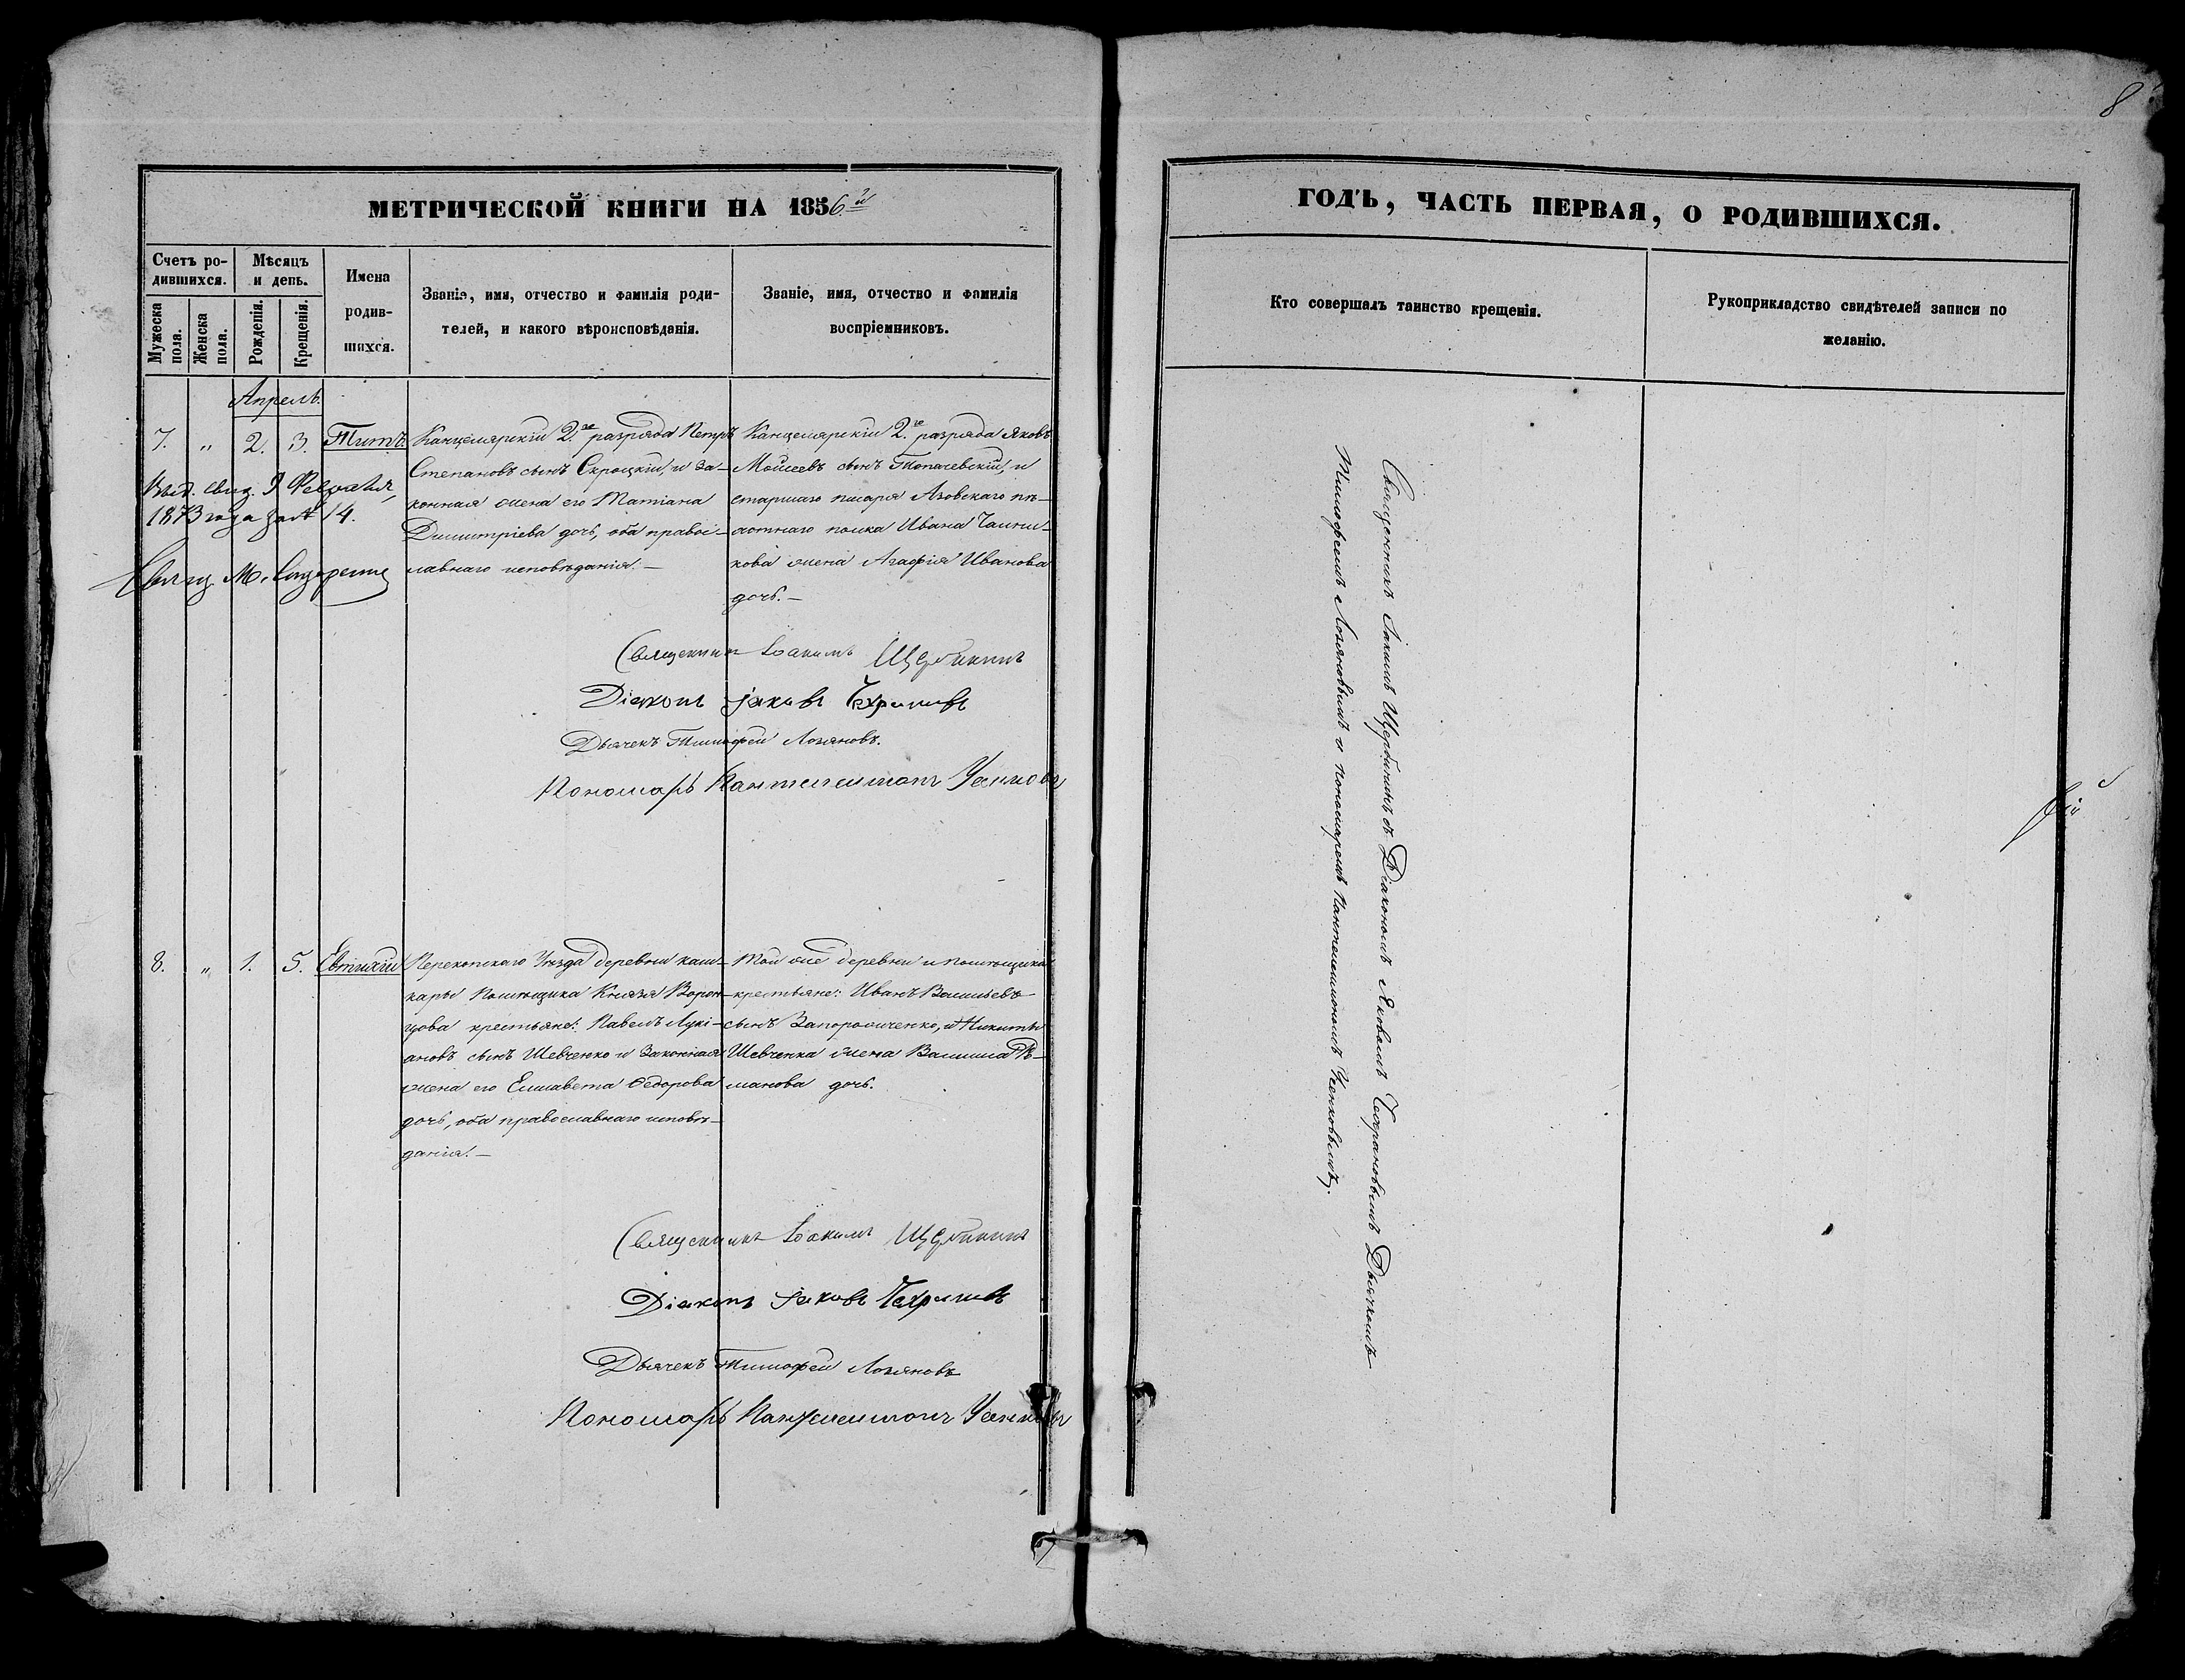 8
МЕТРИЧЕСКОЙ КНИГИ НА 1856й
ГОДЪ, ЧАСТЬ ПЕРВАЯ, О РОДИВШИХСЯ.
Счетъ ро-
дившихся.
Мѣсяцъ
и день.
Мужеска
пола.
Женска
пола.
Рожденія.
Крещенія.
Имена
родив-
шихся.
Званіе, имя, отчество и фамилія роди-
телей, и какого вѣроисповѣданія.
Званіе, имя, отчество и фамилія
воспріемниковъ.
Кто совершалъ таинство крещенія.
Рукоприкладство свидѣтелей записи по
желанію.
Апрель.
7. „ 2. 3. Титъ.
Выд. свид. 9 Февраля,
1873 года за № 14.
Свящ М.
Канцелярскій 2.го разряда Петръ
Степановъ сынъ Скроцкій, и за-
конная жена его Татіана
Димитріева дочь, оба правос-
лавнаго исповѣданія. —
Канцелярскій 2.го разряда Яковъ
Мойсеевъ сынъ Топачевскій, и
старшаго писаря Азовскаго пѣ-
хотнаго полка Ивана
кова жена Агафія Иванова
дочь. —
Священник Іоакимъ Щербинин
Діякон Іаковъ
Дьячекъ Тимофей Лозяновъ.
Пономарь Пантелеимон Усенков
8. „ 1. 5. Евтихій
Перекопскаго Уѣзда деревни каш-
кары Помѣщика Князя Ворон-
цова крестьяне: Павелъ Лукі-
ановъ сынъ Шевченко и Законная
жена его Елисавета Ѳедорова
дочь, оба православнаго исповѣ-
данія. —
Той же деревни и помѣщика
крестьяне: Иванъ Васильевъ
сынъ Запорожченко, и Никиты
Шевченка жена Васса Ро-
манова дочь.
Священник Іоакимъ Щербинин
Діякон Іаковъ
Дьячекъ Тимофей Лозяновъ
Пономарь Пантелеимон Усенков
Священникъ Іакимъ Щербининъ съ Діакономъ Яковомъ Дьячкомъ
Тимофеемъ Лозяновымъ и пономаремъ Пантелеимономъ Усенковымъ.